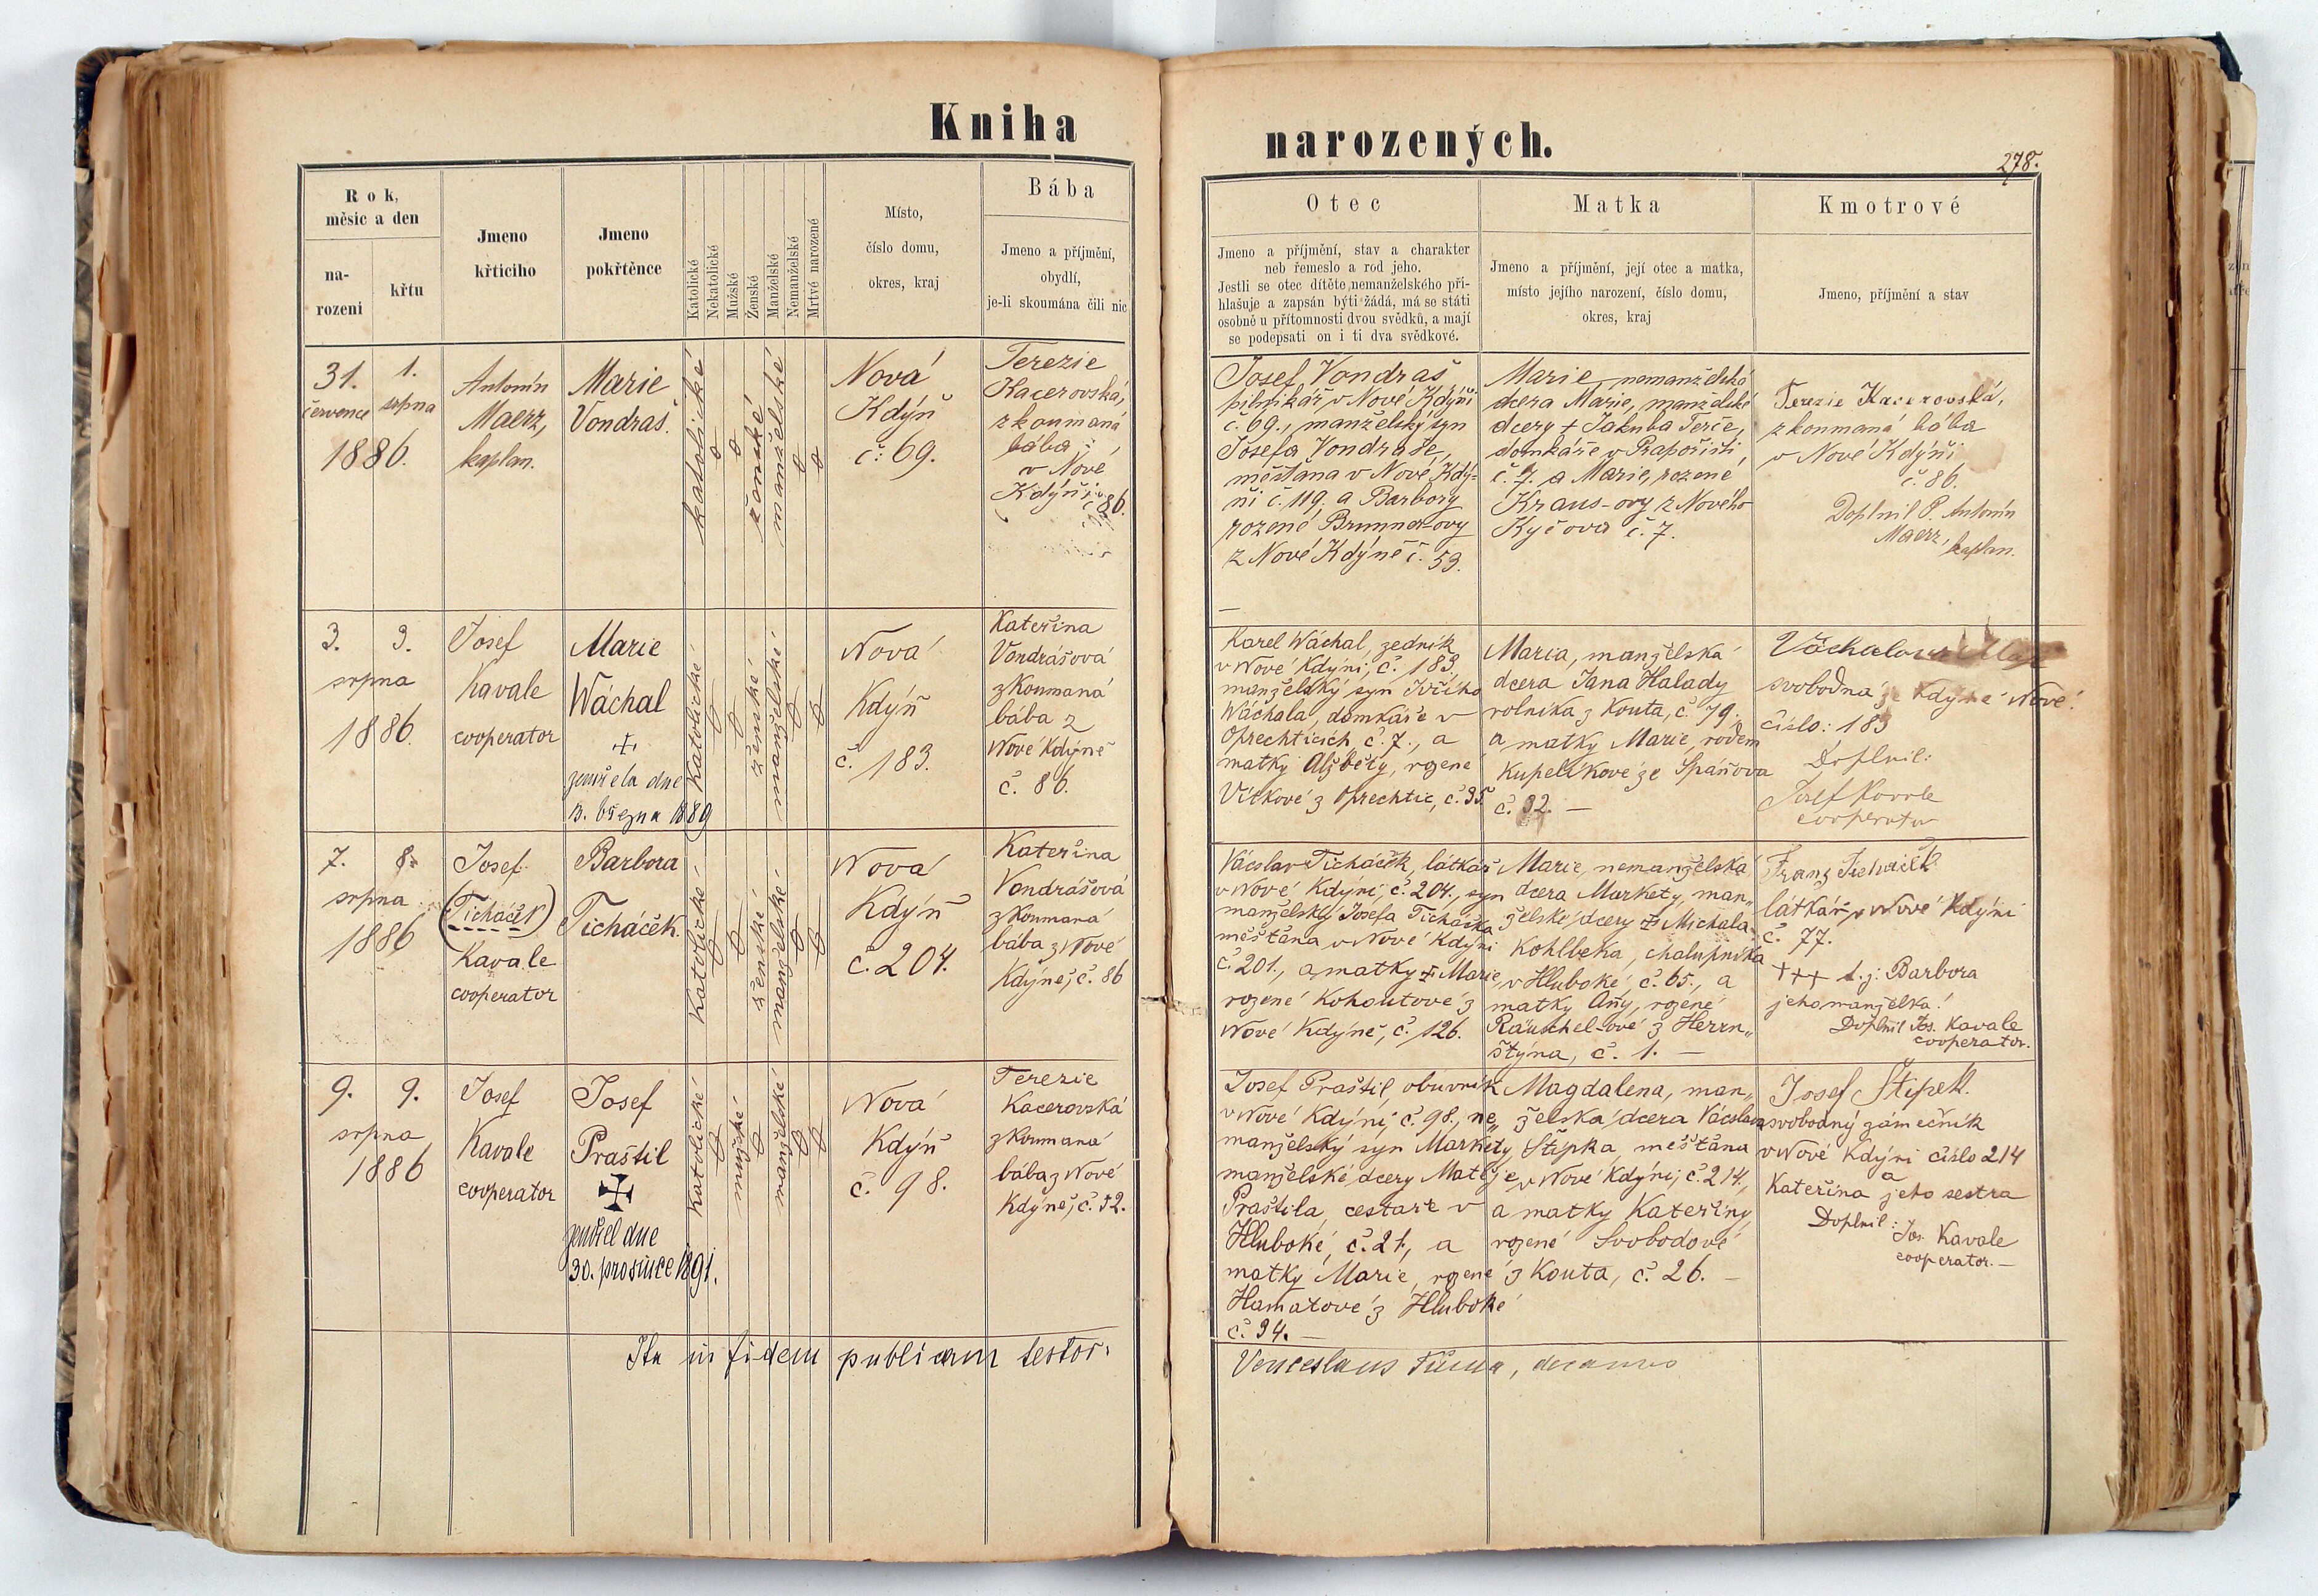 Kniha
narozených.
278.
Rok,
měsíc a den
na-
rození
křtu
Jmeno
křticího
Jmeno
pokřtěnce
Katolické
Nekatolické
Mužské
Ženské
Manželské
Nemanželské
Mrtvě narozené
Místo,
číslo domu,
okres, kraj
Bába
Jmeno a příjmění,
obydlí,
je-li skoumána čili nic
Otec
Jmeno a příjmění, stav a charakter
neb řemeslo a rod jeho.
Jestli se otec dítěte nemanželského při-
hlašuje a zapsán býti žádá, má se státi
osobně u přítomnosti dvou svědků, a mají
se podepsati on i ti dva svědkové.
Matka
Jmeno a příjmění, její otec a matka,
místo jejího narození, číslo domu,
okres, kraj
Kmotrové
Jmeno, příjmění a stav
31.
července
1.
srpna
1886.
Antonín
Maerz,
kaplan.
Marie
Vondraš.
katolické
ženské
manželské
Nová
Kdýň
č: 69.
Terezie
Kacerovská,
zkoumaná
bába
v Nové
Kdýni č.
86.
Josef Vondraš
pilnikář v Nové Kdýni
č. 69., manželský syn
Josefa Vondraše,
měšťana v Nové Kdý-
ni č. 119, a Barbory
rozené Brunna-ovy
z Nové Kdýně č. 59.
Marie, nemanželská
dcera Marie, manželské
dcery + Jakuba Terče,
domkáře v Prapořišti,
č. 7. a Marie, rozené
Kraus-ovy z Nového
Kyčova č. 7.
Terezie Kacerovská,
zkoumaná bába
v Nové Kdýni
č. 86.
Doplnil P. Antonín
Maerz, kaplan.
3. 3.
srpna
1886.
Josef
Kavale
cooperator
Marie
Wáchal
+
zemřela dne
13. března 1889
Katolické
ženské
manželské
Nová
Kdýň
č. 183.
Kateřina
Vondrášová
zkoumaná
bába z
Nové Kdýně
č. 86.
Karel Wáchal, zedník
v Nové Kdýni, č. 183,
manželský syn Jiřího
Wáchala, domkáře v
Oprechticích, č. 7., a
matky Alžběty, rozené
Vítkové z Oprechtic, č. 35.
Maria, manželská
dcera Jana Halady
rolníka z Kouta, č. 79.
a matky Marie, rodem
Kupelíkové ze Spáňova
č. 32. —
svobodná ze Kdýně Nové.
číslo: 183
Doplnil:
Josef Kavale
cooperator
7. 8.
srpna
1886
Josef
(Ticháček)
Kavale
cooperator
Barbora
Ticháček.
Katolické
ženské
manželské
Nová
Kdýň
č. 204.
Kateřina
Vondrášová
zkoumaná
bába z Nové
Kdýně, č. 86
Václav Ticháček, látkář
v Nové Kdýni, č. 204., syn
manželský Josefa Ticháčka
měšťana v Nové Kdýni
č. 201., a matky + Marie,
rozené Kohoutové z
Nové Kdýně, č. 126.
Marie, nemanželská
dcera Markety, man„
želské dcery + Michala
Kohlbeka, chalupníka
v Hluboké, č. 65., a
matky Any, rozené
Räuschel-ové z Herrn„
štýna, č. 1. —
Franz Ticháček
látkář v Nové Kdýni
č. 77.
+++ t. j: Barbora
jeho manželka!
Doplnil Jos. Kavale
cooperator.
9. 9.
srpna
1886
Josef
Kavale
cooperator
Josef
Praštil
+
zemřel dne
30. prosince 1891.
Katolické
mužské
manželské
Nová
Kdýň
č. 98.
Terezie
Kacerovská
zkoumaná
bába z Nové
Kdýně, č. 32.
Josef Praštil, obuvník
v Nové Kdýni, č. 98., ne„
manželský syn Markety
manželské dcery Matěje
Praštila, cestáře v
Hluboké, č. 21, a
matky Marie, rozené
Hamatové z Hluboké
č. 34. —
Magdalena, man„
želská dcera Václava
Štípka, měšťana
v Nové Kdýni, č. 214.,
a matky Kateřiny,
rozené Svobodové
z Kouta, č. 26. —
Josef Štipek
svobodný zámečník
v Nové Kdýni číslo 214
a
Kateřina jeho sestra
Doplnil:
Jos. Kavale
cooperator. —
Ita in fidem publicam testor.
Venceslaus Tůma, decanus